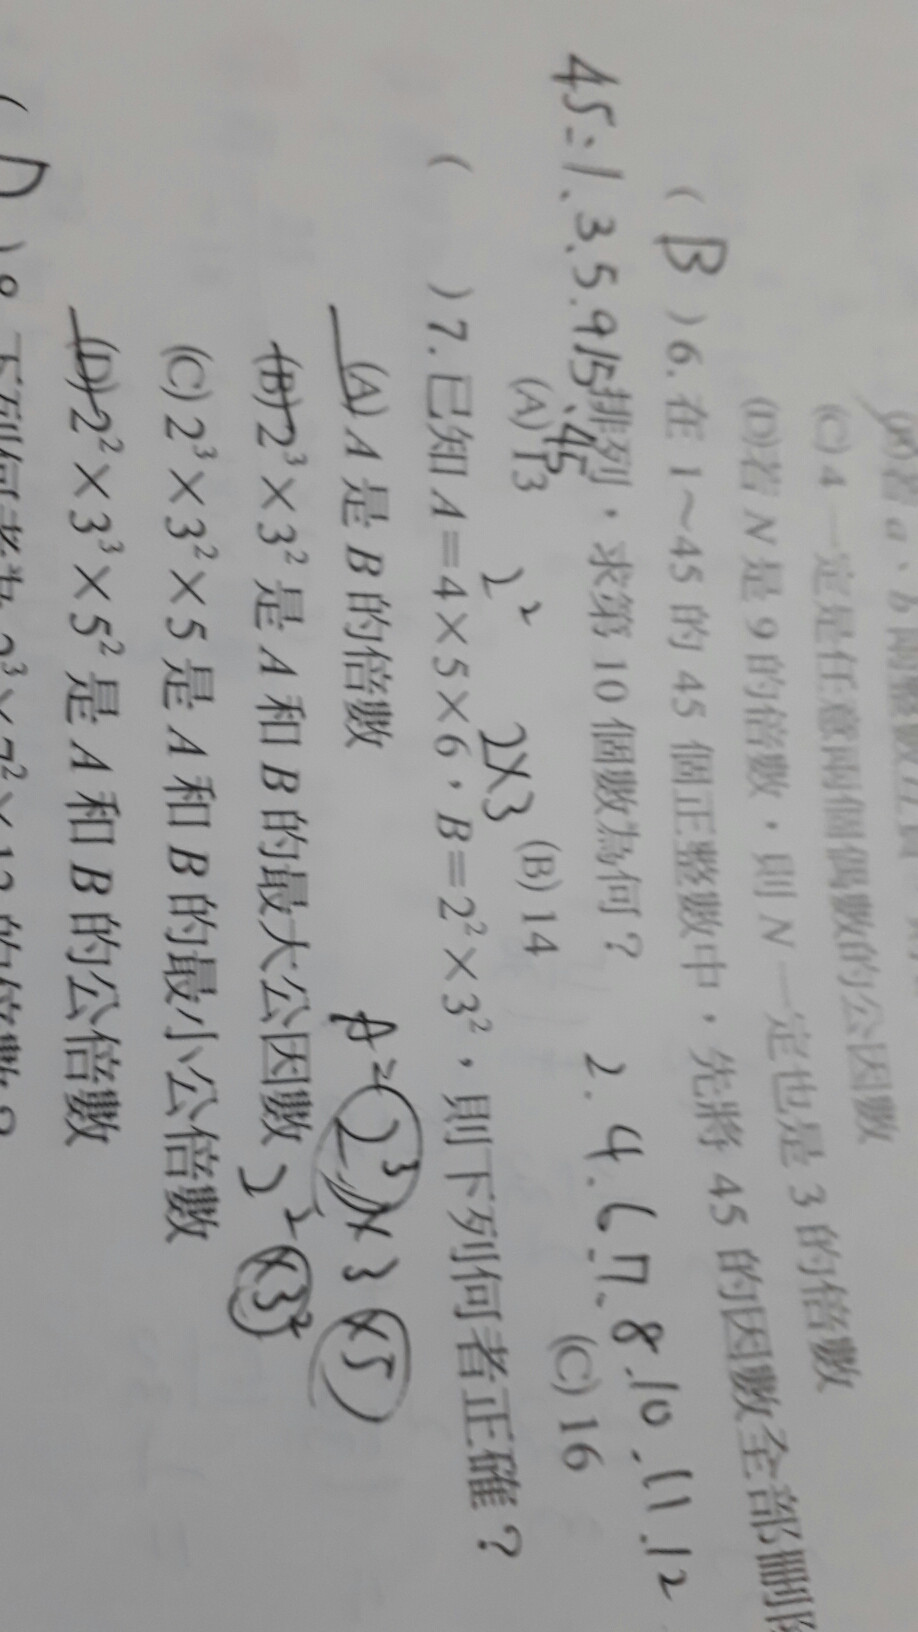 (A)若 a、b 兩整數互質
(C) 4 一定是任意兩個偶數的公因數
(D)若 N 是 9 的倍數，則 N 一定也是 3 的倍數
( B ) 6. 在 1～45 的 45 個正整數中，先將 45 的因數全部刪除
排列，求第 10 個數為何？
45=1.3.5.9.15.45
2.4.6.7.8.10.11.12
(A) 13 (B) 14 (C) 16
2² 2×3
( ) 7. 已知 A＝4×5×6，B＝2²×3²，則下列何者正確？
(A) A 是 B 的倍數
A=2³×3×5
(B) 2³×3² 是 A 和 B 的最大公因數
2²×3²
(C) 2³×3²×5 是 A 和 B 的最小公倍數
(D) 2²×3³×5² 是 A 和 B 的公倍數
( D ) 8. 下列何者為 2³×7²×13 的倍數？